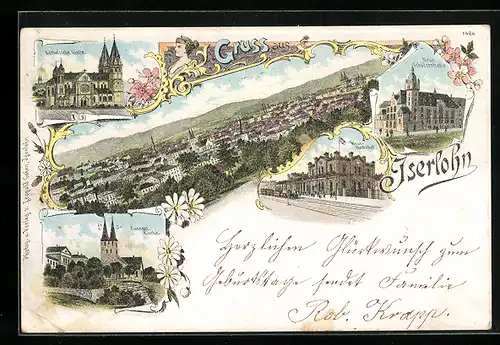 Katholische Kirche
Gruss aus
1486
Neue
Schützenhalle
Bahnhof
Iserlohn
Evangel.
Kirche
Herzlichen Glückwunsch zum
Geburtstage sendet Familie
Rob. Krapp.